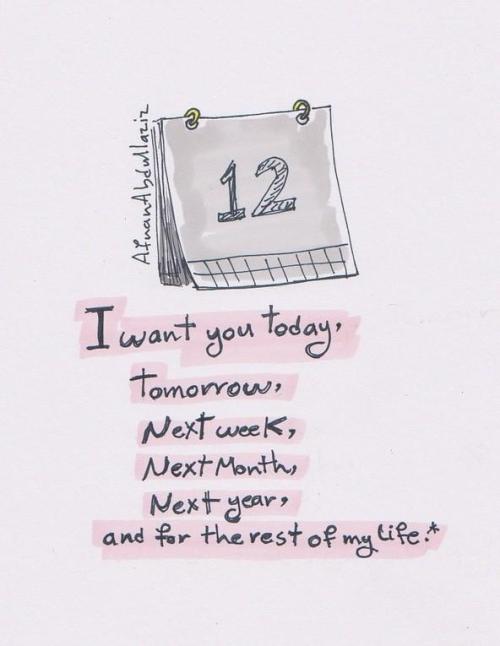 AfnanAbdullaziz
12
I want you today,
Tomorrow,
Next week,
Next Month,
Next year,
and for the rest of my Life.*